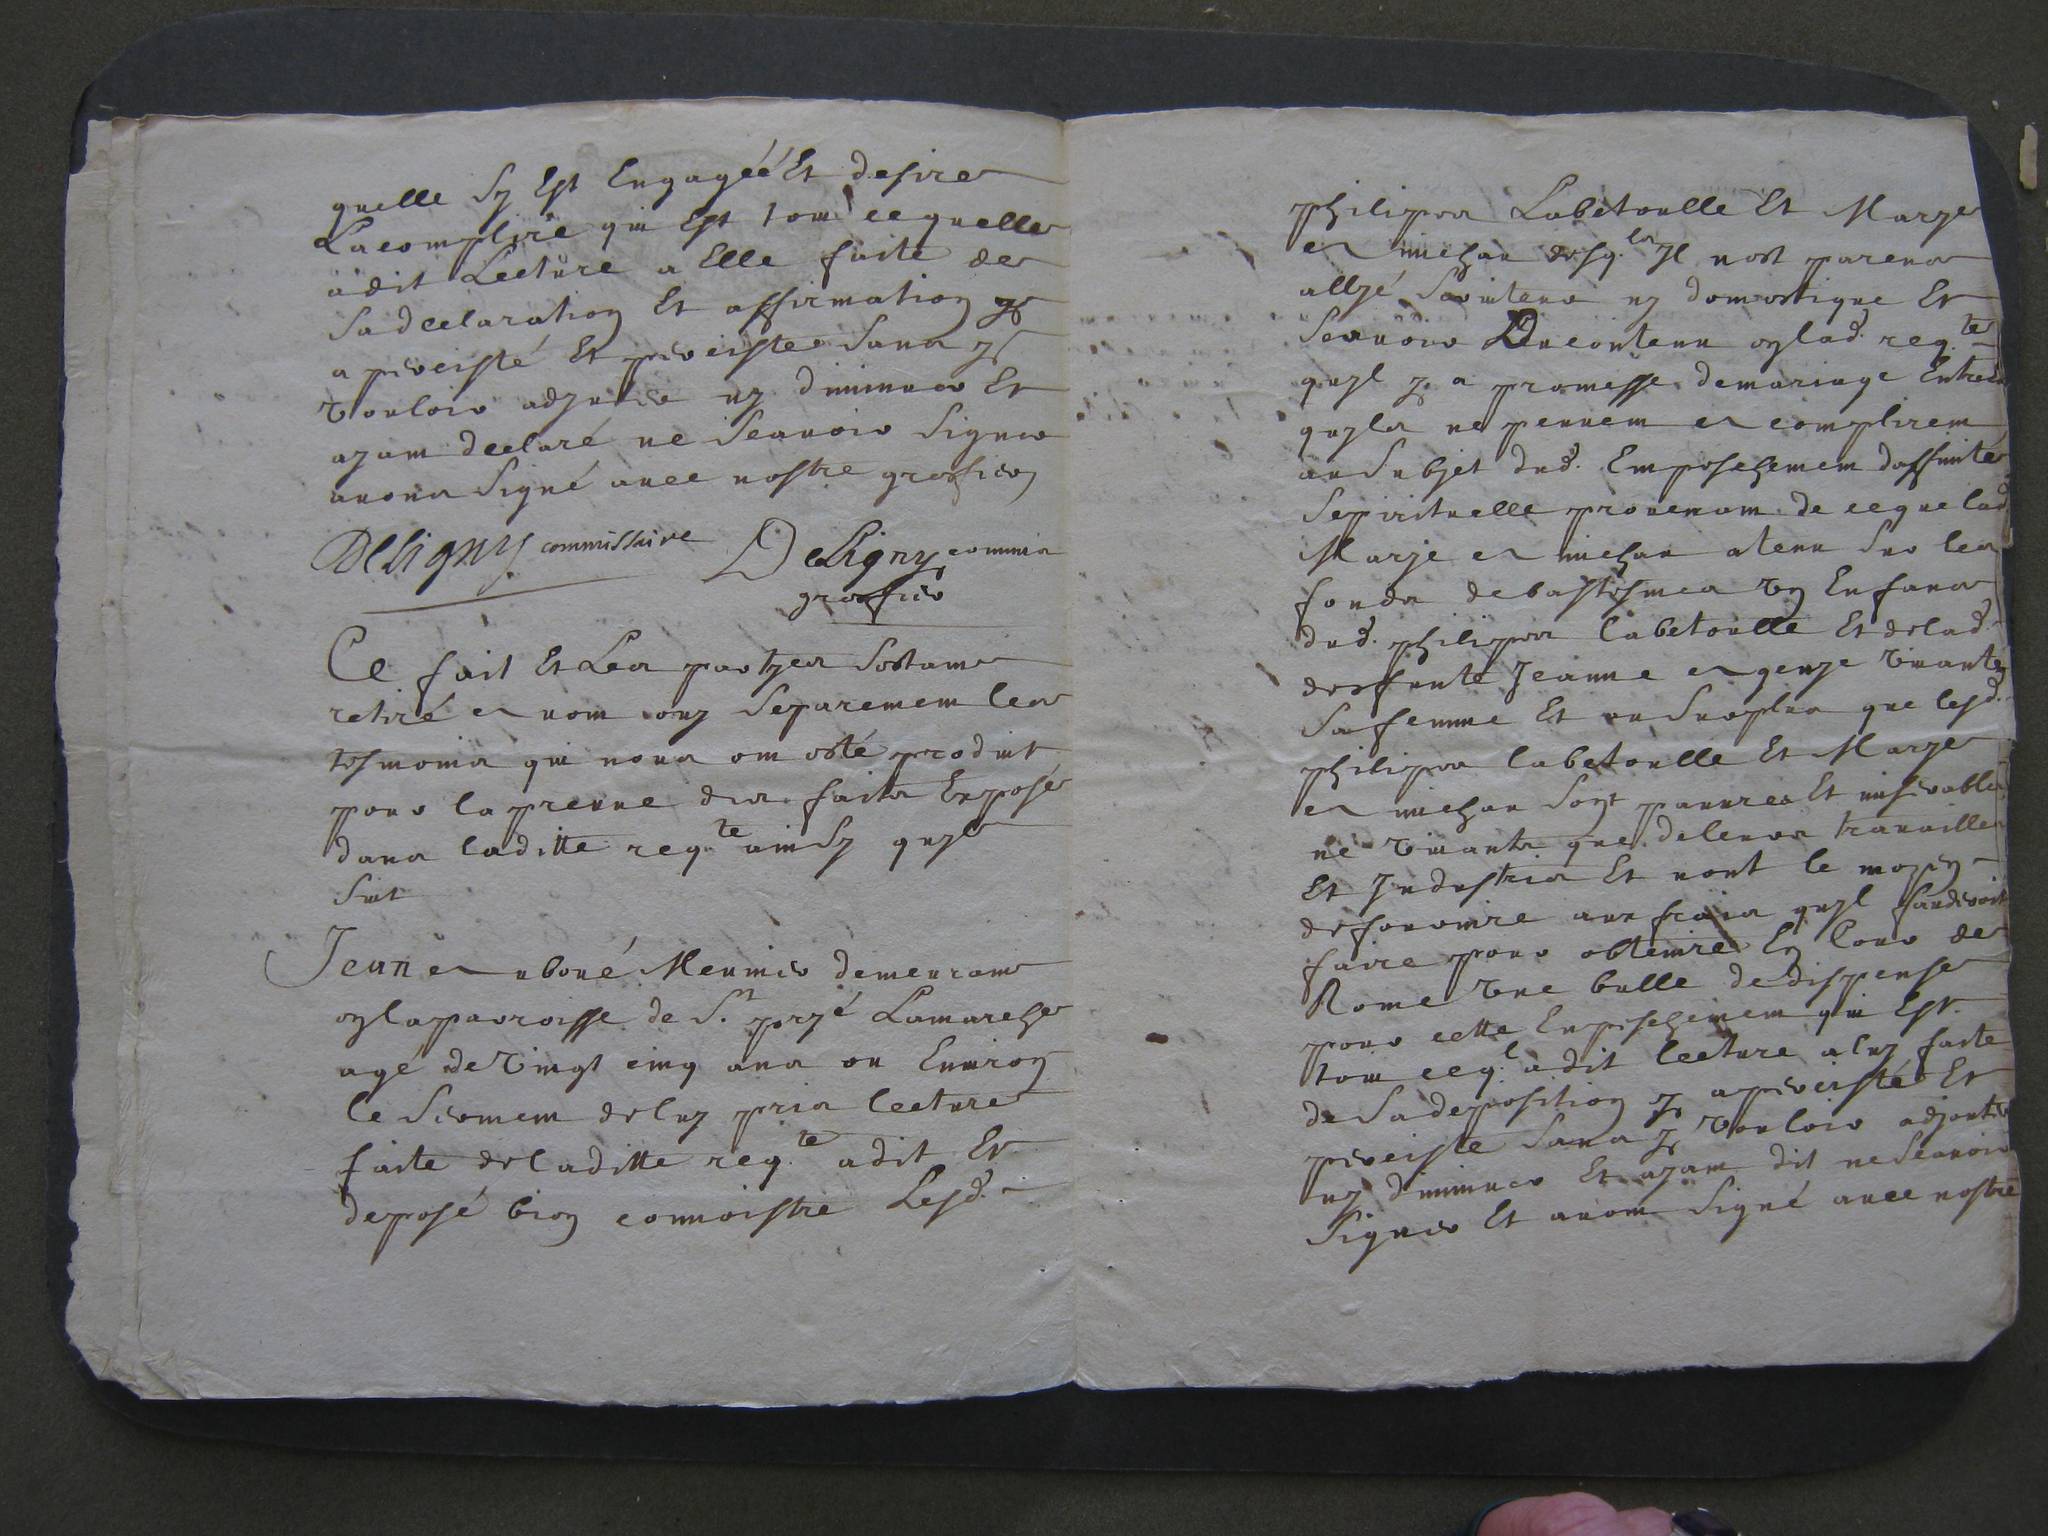 quelle sy Est Engagéé Et desire
Lacomplire qui Est tout ce quelle
a dit Lecture a Elle faite de
sa declaration Et affirmation y
a percisté Et perciste sans y
vouloir adjuter ny diminuer Et
ayant declaré ne scavoir signer
avons signé avec nostre greffier
DeLigny commissaire DeLigny commis
greffier
Ce fait Et Les partyes sestant
retiré nous ouy separement les
tesmoins qui nous ont esté produit
pour la preuve des faits Exposé
dans laditte req.te ainsy quyl
suit
Jean Meunier demeurant
en la parroisse de S.t pryé Lamarche
agé de vingt cinq ans ou Environ
le serment de luy pris lecture
faite de laditte req.te a dit Et
deposé bien connoistre Lesd.
philipes Labetoulle Et Marye
michau desq.ls Jl nest parens
allyé serviteur ny domestique Et
scavoir Le contenu en lad. req.te
quyl y a promesse de mariage Entreux
quyls ne peuvent complirent
au subjet dud. Empeschement daffinité
sepirituelle provenant de ce que lad.
Marye michau a tenu sur les
fonds de baptesmes un Enfans
dud. philipes labetoulle Et de lad.
deffunte Jeanne vivante
sa femme Et au surplus que lesd.
philipes labetoulle Et Marye
michau sont pauvres Et miserables
ne vivants que de leurs travailles
Et Jndustries Et nont le moyen
de fournire aux frais quyl faudroit
faire pour obtenire En Cour de
Rome une bulle de dispense
pour cette Enpeschement qui Est
tout ceq.l a dit lecture a luy faite
de sa deposition y a percisté Et
perciste sans y vouloir adjouter
ny diminuer Et ayant dit ne scavoir
signer Et avons signé avec nostre